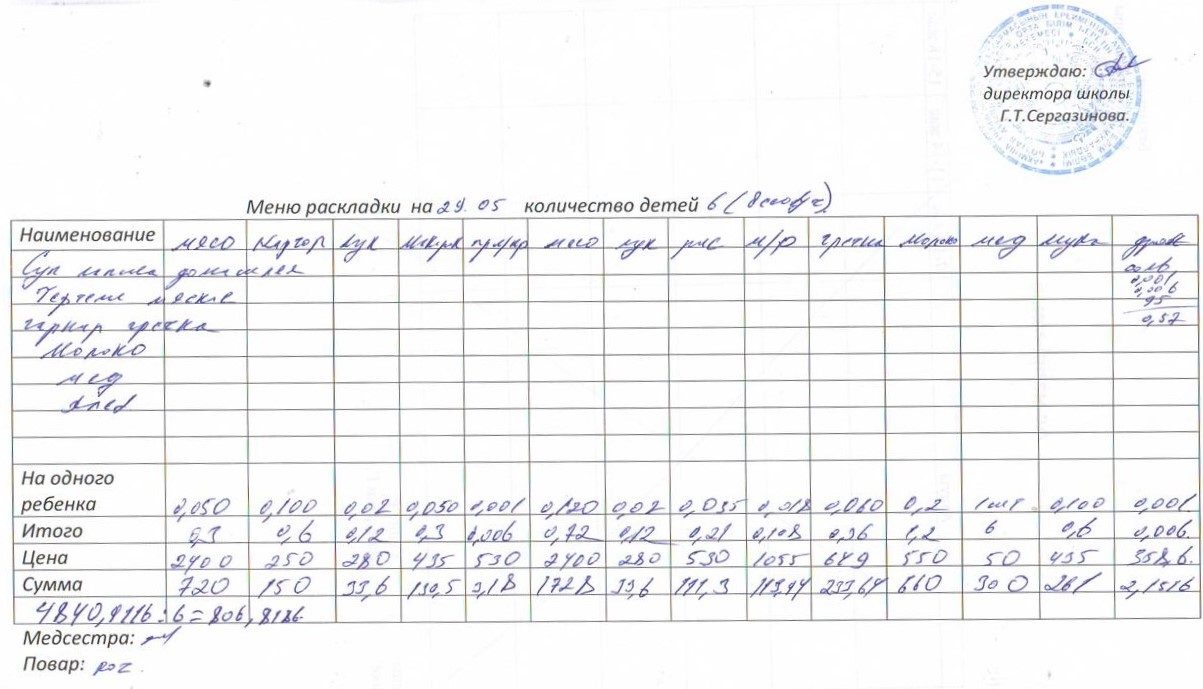 Утверждаю:
директора школы
Г.Т.Сергазинова.
Меню раскладки на 29.05 количество детей 6
Наименование мясо картор лук пр/жр мясо лук рис м/р гречка молоко мед мука дрож
Суп домашлея соль
0,001
0,006
95
гарнир гречка 0,57
Молоко
мед
хлеб
На одного
ребенка 0,050 0,100 0,02 0,050 0,001 0,120 0,02 0,035 0,018 0,060 0,2 1шт 0,100 0,001
Итого 0,3 0,6 0,12 0,3 0,006 0,72 0,12 0,21 0,108 0,36 1,2 6 0,6 0,006
Цена 2400 250 280 435 530 2400 280 530 1055 649 550 50 435 358,6
Сумма 720 150 33,6 130,5 3,18 1728 33,6 111,3 113,94 233,64 660 300 261 2,1516
4840,9116:6=806,8186
Медсестра:
Повар: